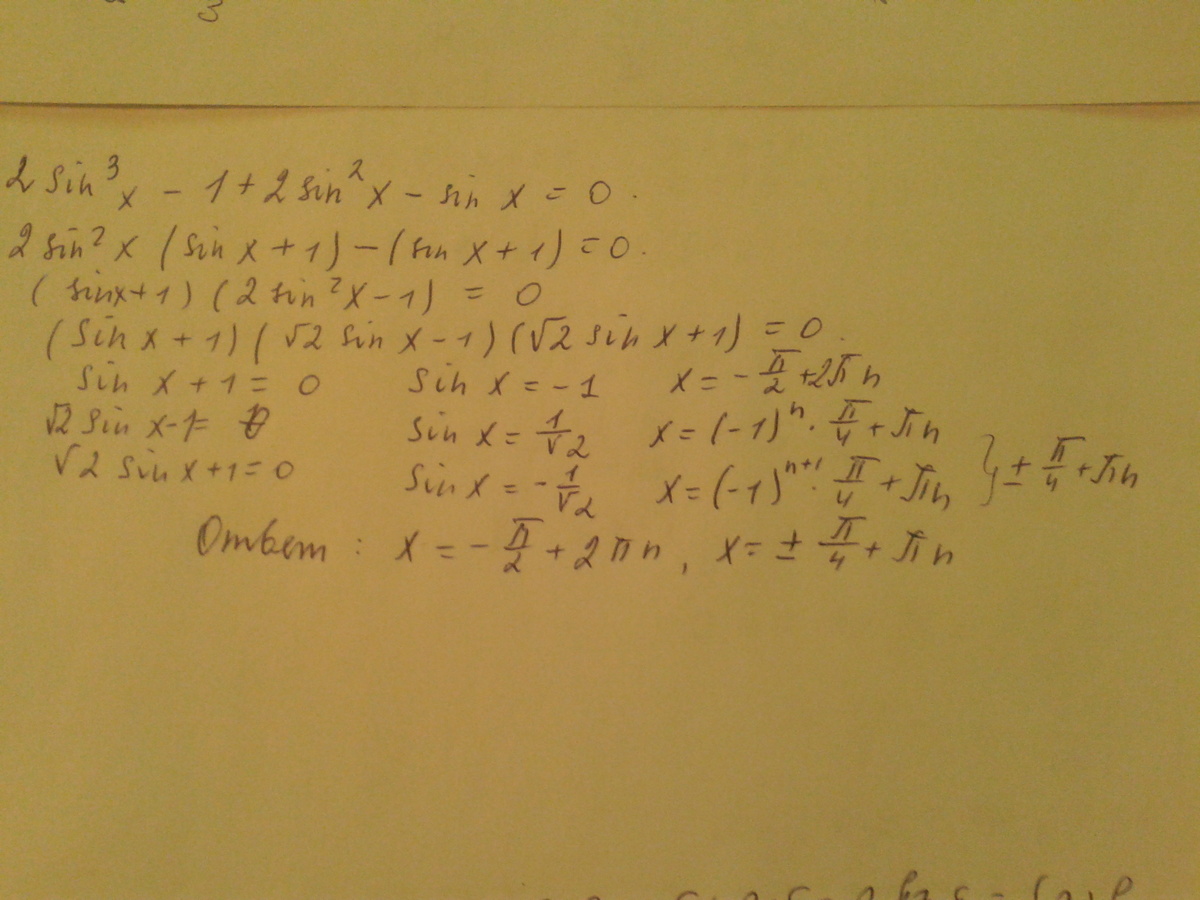 3
2 sin³x - 1 + 2 sin²x - sin x = 0.
2 sin²x (sin x + 1) - (sin x + 1) = 0.
(sinx+1) (2 sin²x-1) = 0
(sin x + 1) (√2 sin x - 1) (√2 sin x + 1) = 0.
sin x + 1 = 0 sin x = -1 x = -π/2 + 2πn
√2 sin x - 1 = 0 sin x = 1/√2 x = (-1)ⁿ · π/4 + πn
√2 sin x + 1 = 0 sin x = -1/√2 x = (-1)ⁿ⁺¹ · π/4 + πn } ± π/4 + πn
Ответ : x = -π/2 + 2πn, x = ± π/4 + πn